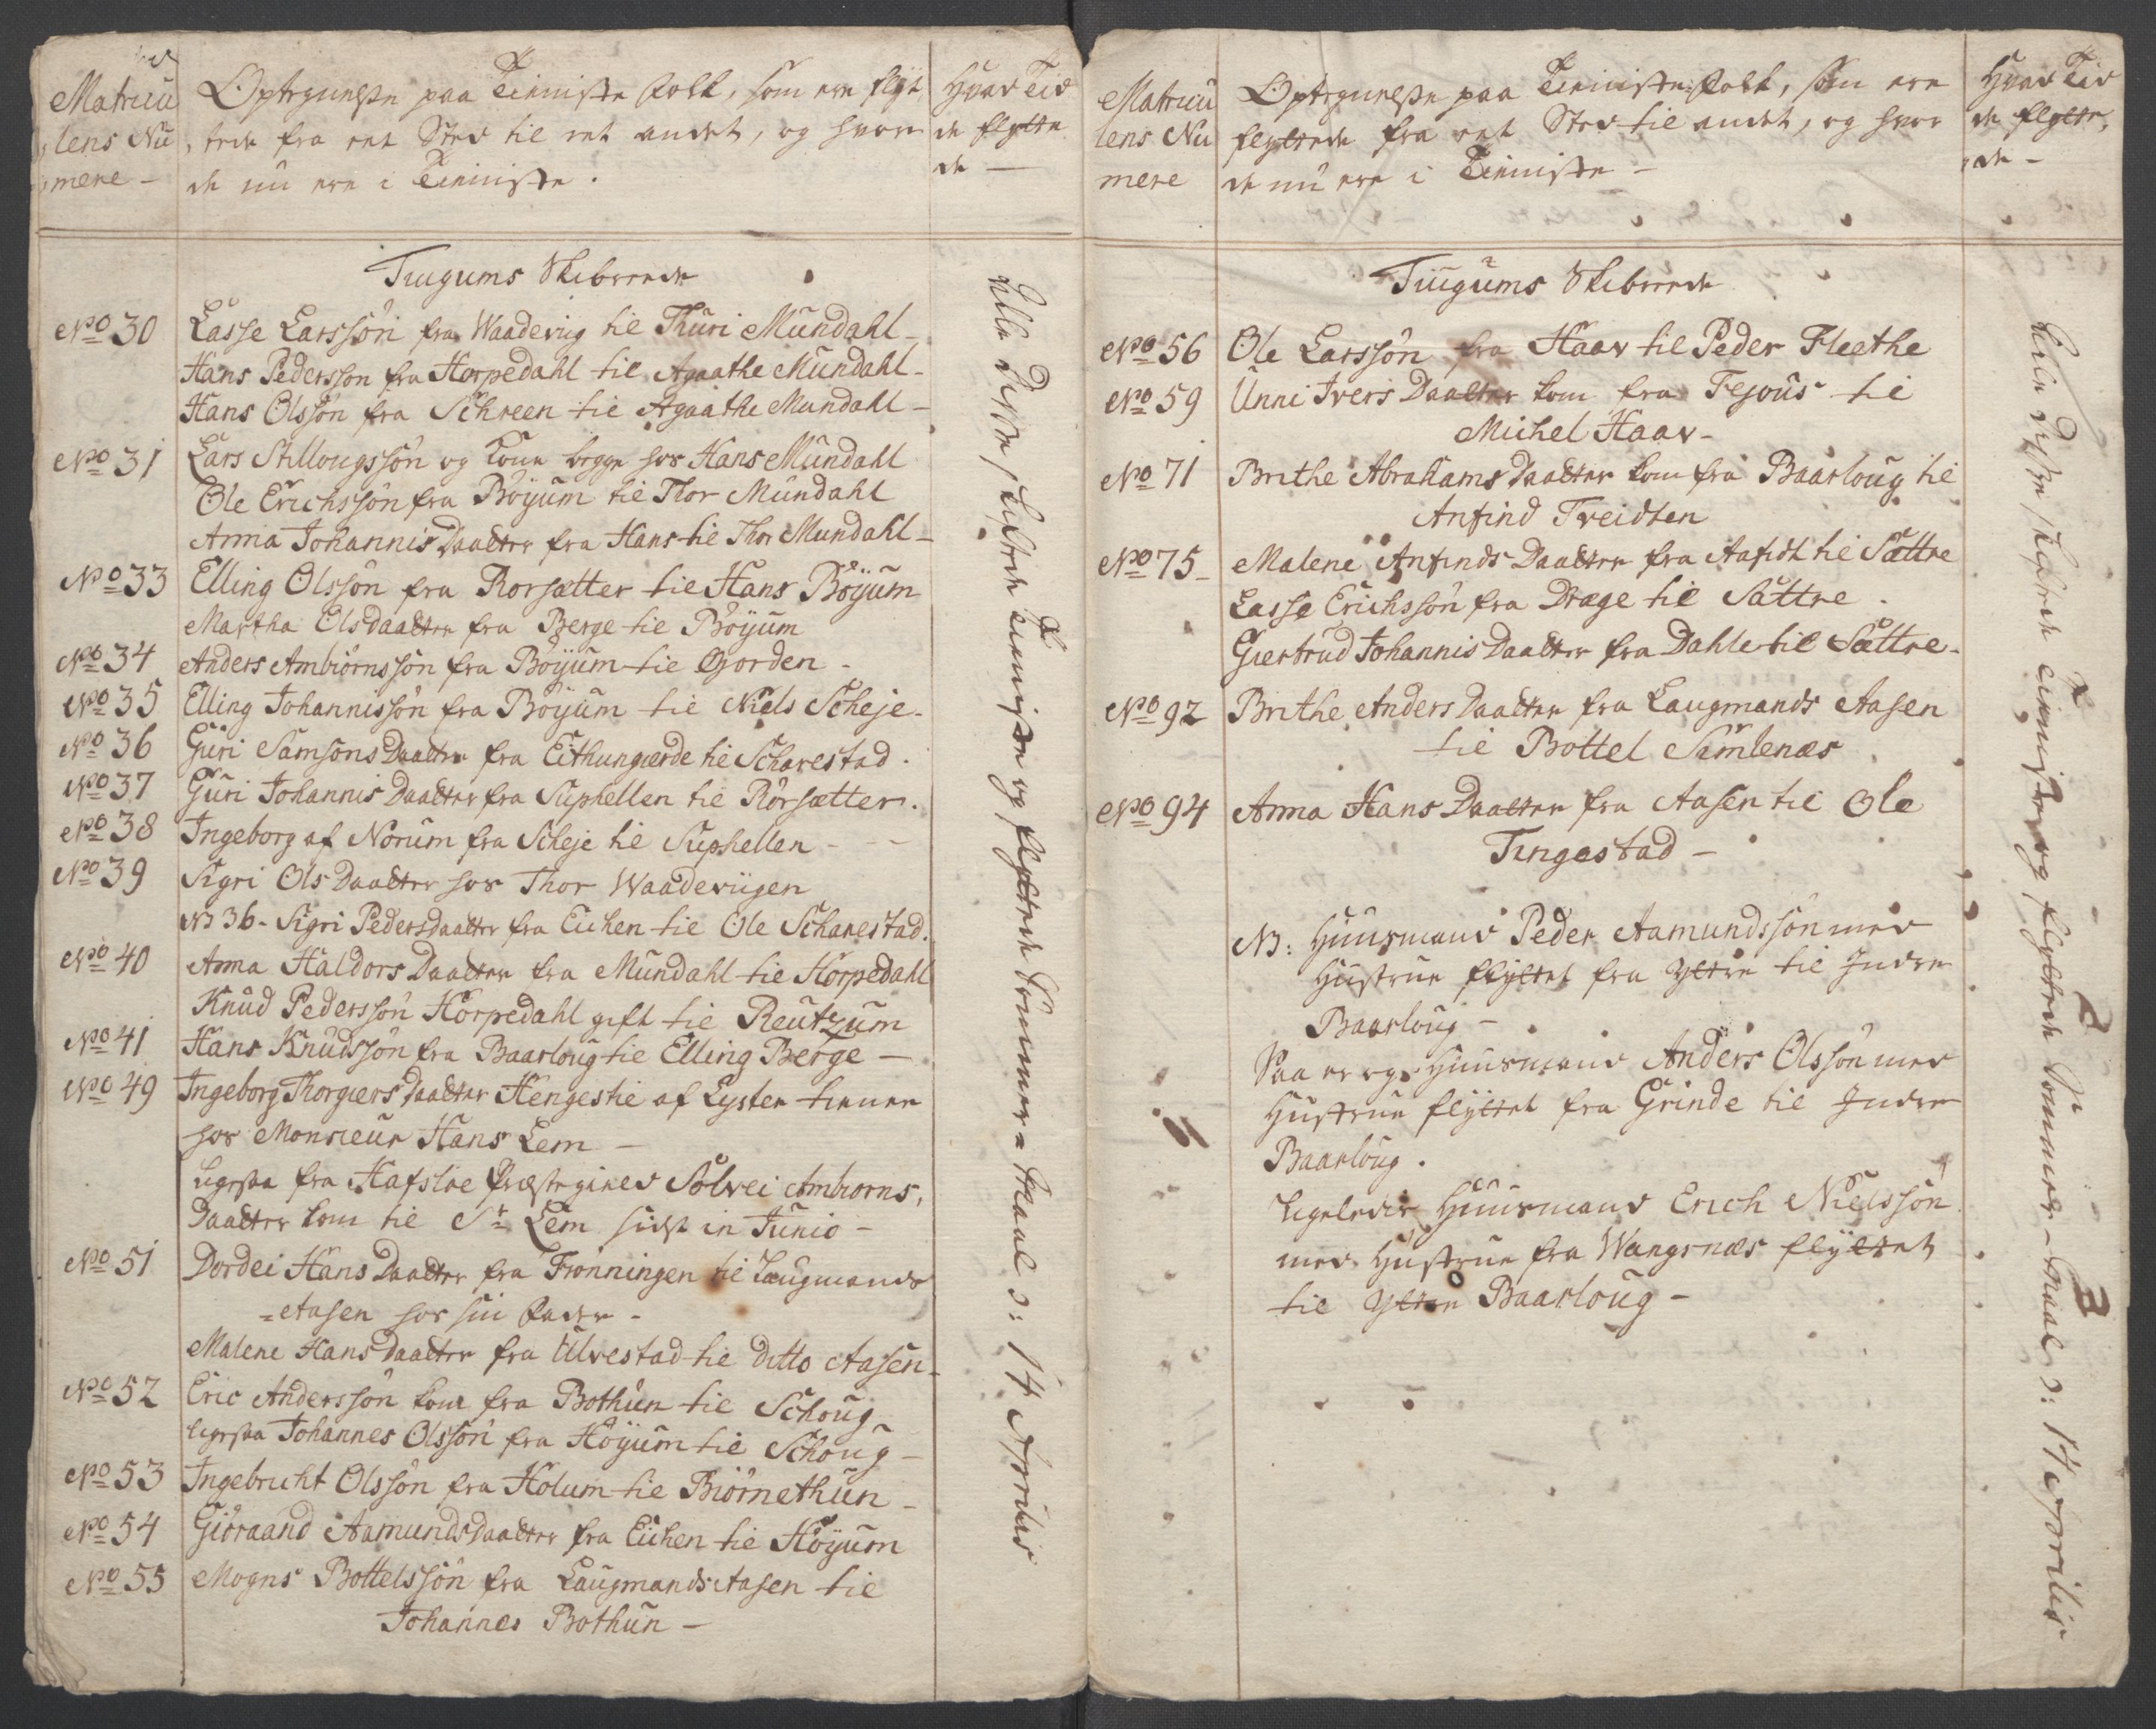 Matricu
lens Nu
mere -
Optegnelse paa Tieniste Folk, som ere flyt
tede fra eet Sted til et andet, og hvor
de nu ere i Tieniste.
Hvad Tid
de flytte
de -
Tiugums Skibrede
No 30 Lasse Larssön fra Waadeviig til Thuri Mundahl -
Hans Pederssön fra Horpedahl til Agaathe Mundahl -
Hans Olssön fra Schreen til Agaathe Mundahl -
No 31 Lars Stillougssön og Kone begge hos Hans Mundahl
Ole Erichssön fra Böyum til Thor Mundahl
Anna Johannis Daatter fra Hans til Thor Mundahl -
No 33 Elling Olssön fra Rorsætter til Hans Böyum
Martha Olsdaatter fra Berge til Böyum
No 34 Anders Ambiörnssön fra Böyum til Gjorden -
No 35 Elling Johannissön fra Böyum til Niels Scheje -
No 36 Guri Samsons Daatter fra Eithungierde til Scharestad.
No 37 Guri Johannis Daatter fra Suphellen til Rörsætter.
No 38 Ingeborg af Norum fra Scheje til Suphellen - - -
No 39 Sigri Ols Daatter hos Thor Waadeviigen
N3 36 - Sigri Pedersdaatter fra Eichen til Ole Scharestad.
No 40 Anna Haldors Daatter fra Mundahl til Horpedahl
Knud Pederssön Horpedahl gift til Reutzum
No 41 Hans Knudssön fra Baarloug til Elling Berge -
No 49 Ingeborg Thorgiers Daatter Hengestie af Lyster tiener
hos Monsieur Hans Lem -
Ligesaa fra Hafsloe Præstegield Solvei Ambiorns,
Daatter kom til Sr Lem sidst in Junio -
No 51 Dordei Hans Daatter fra Fronningen til Laugmands
=Aasen hos sin Fader -
Malene Hans Daatter fra Ulvestad til ditto Aasen -
No 52 Eric Anderssön kom fra Bothun til Schoug -
ligesaa Johannes Olssön fra Höyum til Schoug -
No 53 Ingebricht Olssön fra Holum til Biörnethun -
No 54 Giöraand Aamunds Daatter fra Eichen til Höyum
No 55 Mogns Bottelssön fra Laugmands Aasen til
Johannes Bothun -
Alle disse skiftede tieniste og flyttede Sommer=Maal ɔ: 14 Aprilis
Matricu
lens Nu
mere
Optegnelse paa Tieniste Folk, som ere
flyttede fra eet Sted til andet, og hvor
de nu ere i Tieniste -
Hvad Tid
de flytte,
de -
Tiugums Skibrede
No 56 Ole Larssön fra Haav til Peder Fleethe
No 59 Unni Ivers Daatter kom fra Fejous til
Michel Haav -
No 71 Brithe Abrahams Daatter kom fra Baarloug til
Anfind Treidten
No 75 - Malene Anfinds Daatter fra Aafedt til Sættre
Lasse Erichssön fra Dræge til Sættre.
Giertrud Johannis Daatter fra Dahle til Sættre -
No 92 Brithe Anders Daatter fra Laugmands Aasen
til Bottel Simlenæs
No 94 Anna Hans Daatter fra Aasen til Ole
Tingastad -
NB: Huusmand Peder Aamundssön med
Hustrue flyttet fra Yttre til Indre
Baarloug -
Saa er og Huusmand Anders Olssön med
Hustrue flyttet fra Grinde til Indre
Baarloug.
Ligeledes Huusmand Erich Nielssön
med Hustrue fra Wangsnæs flyttet
til Yttre Baarloug -
Alle disse skiftede tieniste og flyttede Sommer=Maal ɔ: 14 Aprilis